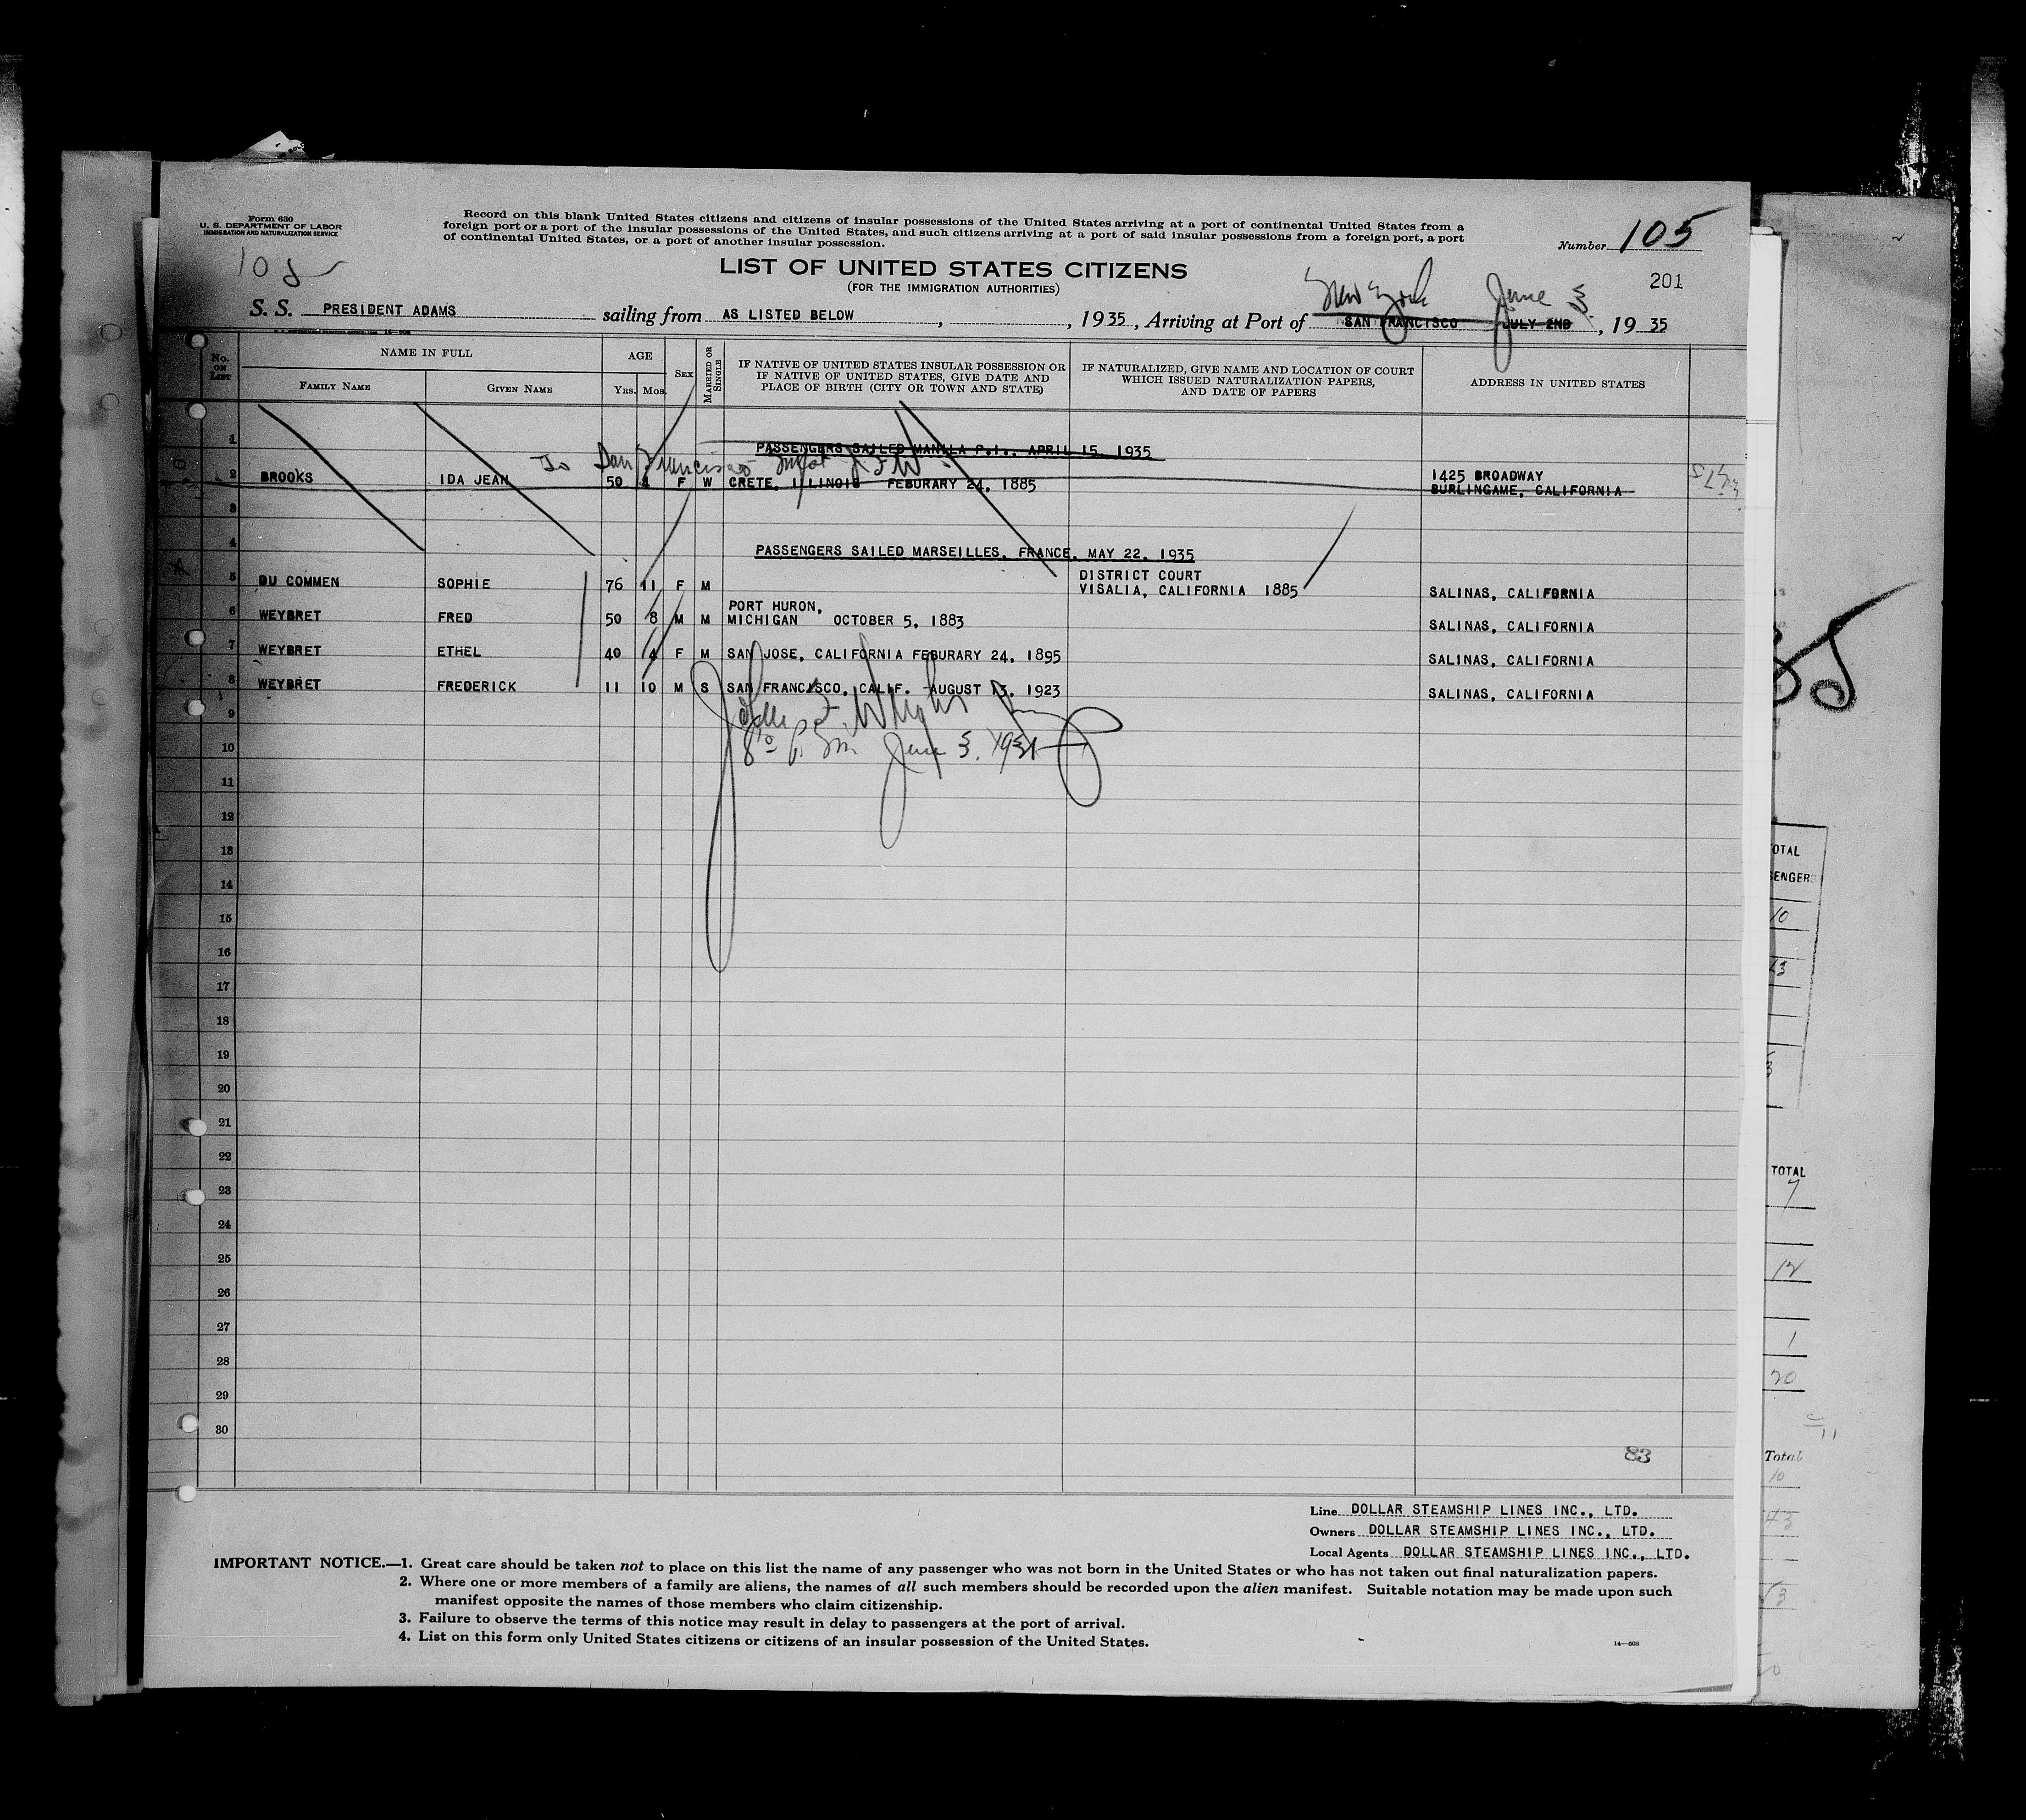 Form 630
U. S. DEPARTMENT OF LABOR
IMMIGRATION AND NATURALIZATION SERVICE
Record on this blank United States citizens and citizens of insular possessions of the United States arriving at a port of continental United States from a
foreign port or a port of the insular possessions of the United States, and such citizens arriving at a port of said insular possessions from a foreign port, a port
of continental United States, or a port of another insular possession.
Number 105
LIST OF UNITED STATES CITIZENS
(FOR THE IMMIGRATION AUTHORITIES)
201
New York June 3
S. S. PRESIDENT ADAMS sailing from AS LISTED BELOW , , 1935, Arriving at Port of SAN FRANCISCO JULY 2ND , 1935
No. ON LIST
NAME IN FULL
FAMILY NAME
GIVEN NAME
AGE
Yrs. Mos.
SEX
MARRIED OR SINGLE
IF NATIVE OF UNITED STATES INSULAR POSSESSION OR
IF NATIVE OF UNITED STATES, GIVE DATE AND
PLACE OF BIRTH (CITY OR TOWN AND STATE)
IF NATURALIZED, GIVE NAME AND LOCATION OF COURT
WHICH ISSUED NATURALIZATION PAPERS,
AND DATE OF PAPERS
ADDRESS IN UNITED STATES
1 PASSENGERS SAILED MANILA P.I., APRIL 15, 1935
To San Francisco
2 BROOKS IDA JEAN 50 4 F W CRETE, ILLINOIS FEBURARY 24, 1885 1425 BROADWAY
BURLINGAME, CALIFORNIA
3
4 PASSENGERS SAILED MARSEILLES, FRANCE, MAY 22, 1935
5 DU COMMEN SOPHIE 76 11 F M DISTRICT COURT
VISALIA, CALIFORNIA 1885 SALINAS, CALIFORNIA
6 WEYBRET FRED 50 8 M M PORT HURON,
MICHIGAN OCTOBER 5, 1883 SALINAS, CALIFORNIA
7 WEYBRET ETHEL 40 4 F M SAN JOSE, CALIFORNIA FEBURARY 24, 1895 SALINAS, CALIFORNIA
8 WEYBRET FREDERICK 11 10 M S SAN FRANCISCO, CALIF. AUGUST 13, 1923 SALINAS, CALIFORNIA
9
10
June 3,
11
12
13
14
15
16
17
18
19
20
21
22
23
24
25
26
27
28
29
30
83
Line DOLLAR STEAMSHIP LINES INC., LTD.
Owners DOLLAR STEAMSHIP LINES INC., LTD.
Local Agents DOLLAR STEAMSHIP LINES INC., LTD.
IMPORTANT NOTICE.—1. Great care should be taken not to place on this list the name of any passenger who was not born in the United States or who has not taken out final naturalization papers.
2. Where one or more members of a family are aliens, the names of all such members should be recorded upon the alien manifest. Suitable notation may be made upon such
manifest opposite the names of those members who claim citizenship.
3. Failure to observe the terms of this notice may result in delay to passengers at the port of arrival.
4. List on this form only United States citizens or citizens of an insular possession of the United States.
14—608
TOTAL
Total